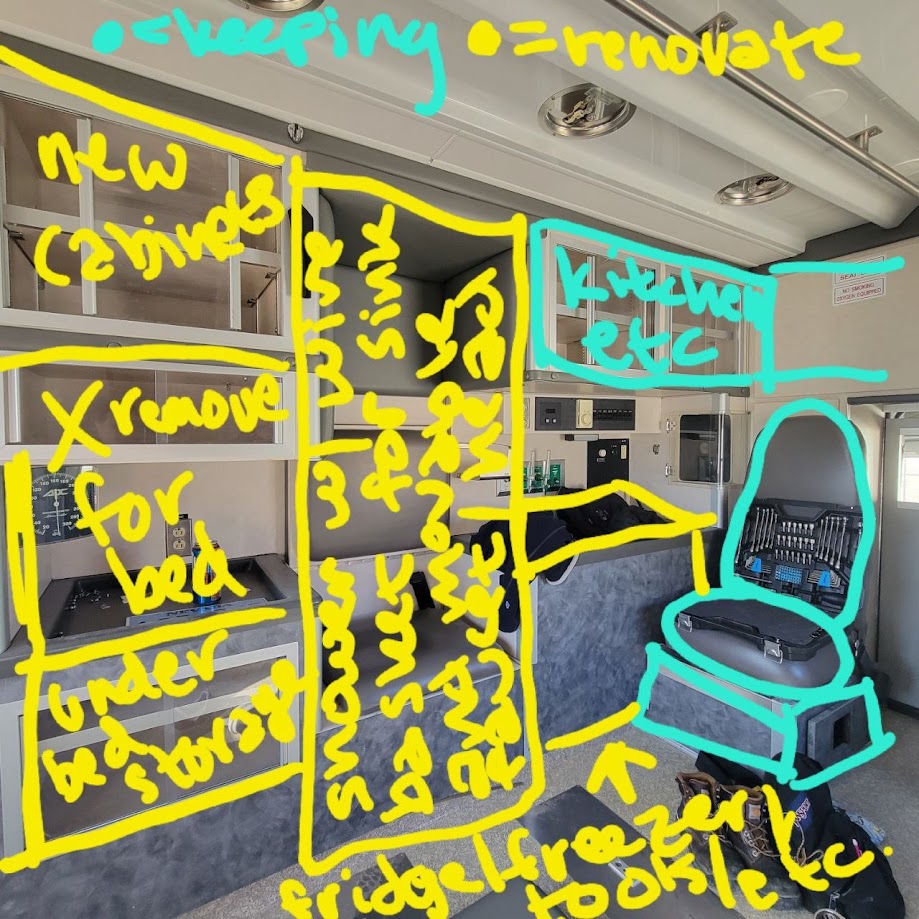 •=keeping •=renovate
new
cabinets
X remove
for
bed
under
bed
storage
shower w/
for sink
kitchen
etc
NO SMOKING
OXYGEN EQUIPPED
fridge/freezer/
tools/etc.